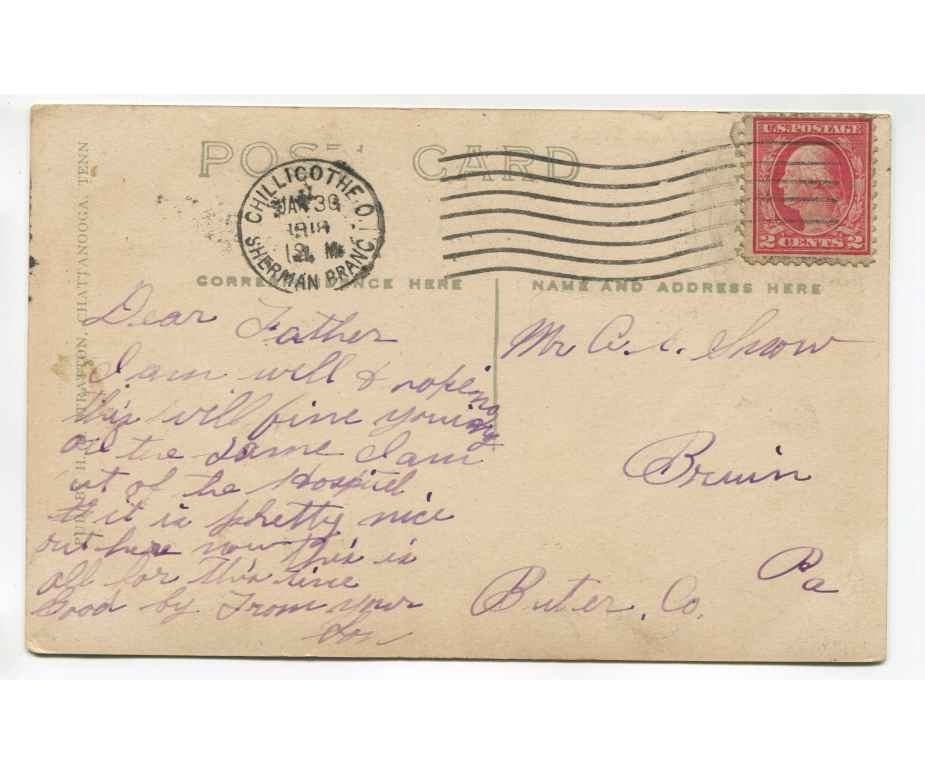 POST CARD
CHILLICOTHE O.
JAN 30
1918
12 M
SHERMAN BRANCH
U.S. POSTAGE
2 CENTS 2
CORRESPONDENCE HERE
NAME AND ADDRESS HERE
Dear Father
I am well & hopeing
this will fine you
all the same I am
out of the Hospitel
& it is phretty nice
out here now this is
all for this time
Good by From your
Son
Mr C. Snow
Bruin
Buter, Co.
Pa
PUB. BY H. STRATTON, CHATTANOOGA, TENN